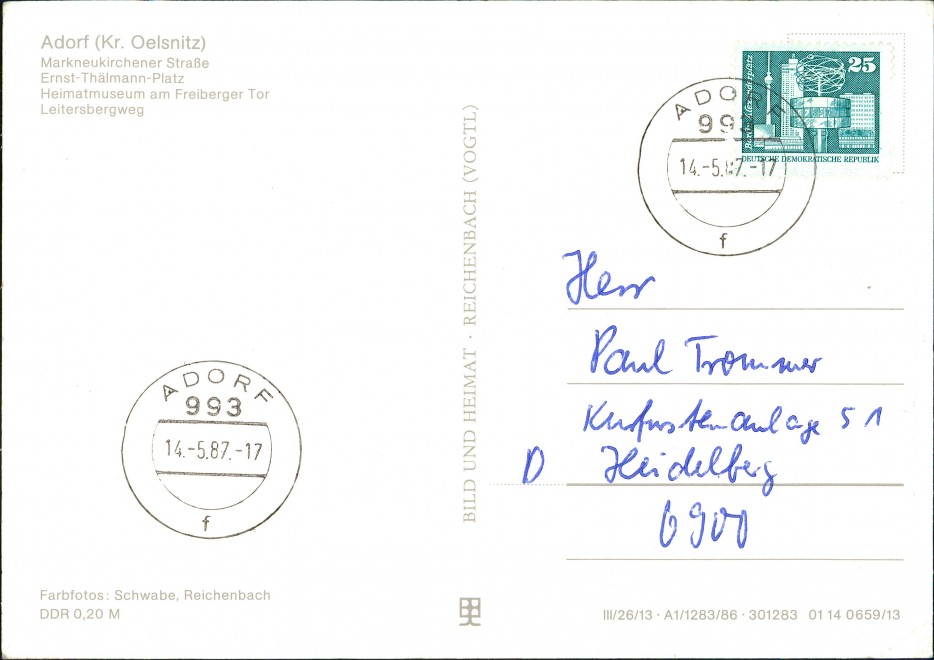 Adorf (Kr. Oelsnitz)
Markneukirchener Straße
Ernst-Thälmann-Platz
Heimatmuseum am Freiberger Tor
Leitersbergweg
BILD UND HEIMAT · REICHENBACH (VOGTL)
25
Berlin, Alexanderplatz
DEUTSCHE DEMOKRATISCHE REPUBLIK
ADORF
993
14.-5.87.-17
f
Herr
Paul Trommer
Kurfürstenanlage 51
D Heidelberg
6900
ADORF
993
14.-5.87.-17
f
Farbfotos: Schwabe, Reichenbach
DDR 0,20 M
III/26/13 · A1/1283/86 · 301283 01 14 0659/13